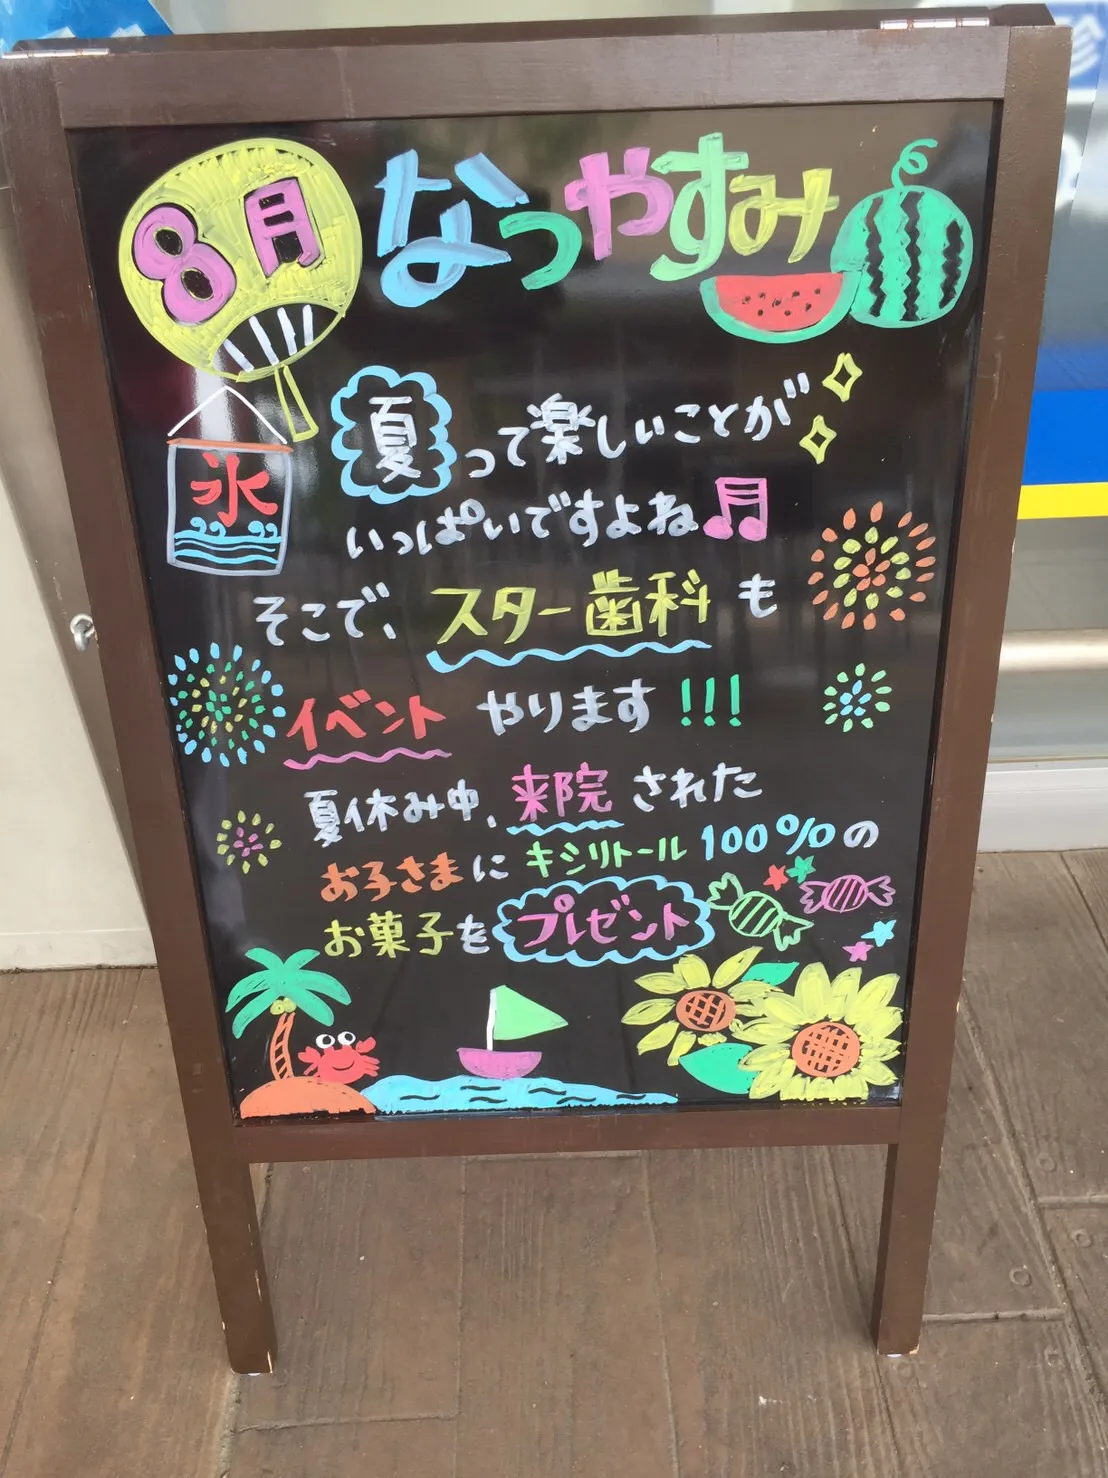 8月 なつやすみ
氷
夏って楽しいことが
いっぱいですよね
そこで、スター歯科も
イベントやります!!!
夏休み中、来院された
お子さまにキシリトール100%の
お菓子をプレゼント